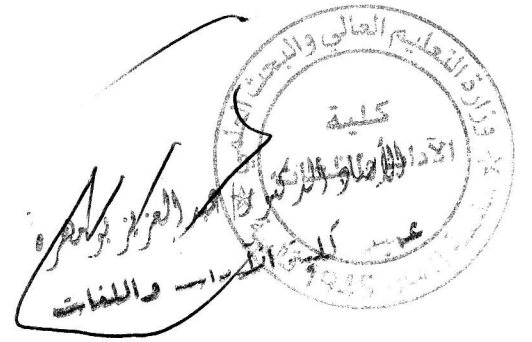 وزارة التعليم العالي والبحث العلمي
كلية
الأستاذ الدكتور عبد العزيز بومهرة
عميد كلية الآداب واللغات
1945